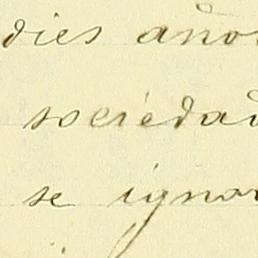 dies años
sociedad
se ignor